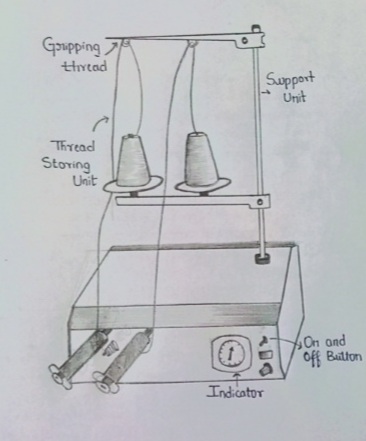 Gripping
thread
Support
Unit
Thread
Storing
Unit
On and
Off Button
Indicator